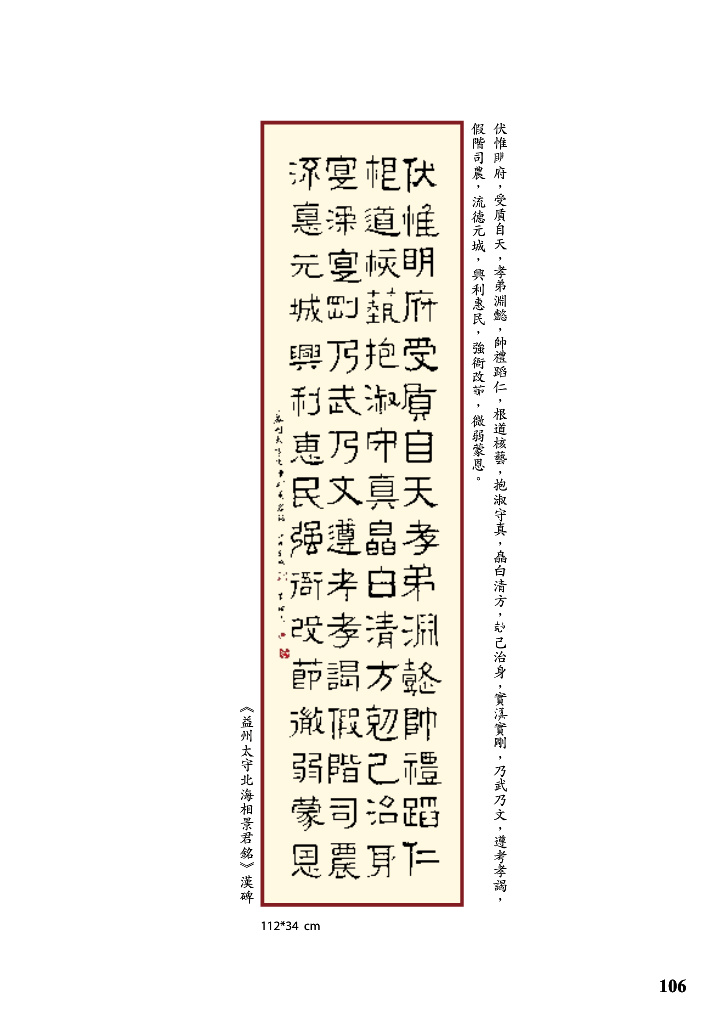 伏惟明府，受質自天，孝弟淵懿，帥禮蹈仁，根道核藝，抱淑守真，皛白清方，剋己治身，實渘實剛，乃武乃文，遵考孝謁，
假階司農，流德元城，興利惠民，強衙改節，微弱蒙恩。
伏惟明府受質自天孝弟淵懿帥禮蹈仁
根道核藝抱淑守真皛白清方剋己治身
寔渘寔剛乃武乃文遵考孝謁假階司農
流悳元城興利惠民强衙改節微弱蒙恩
《益州太守北海相景君銘》漢碑
112*34 cm
106